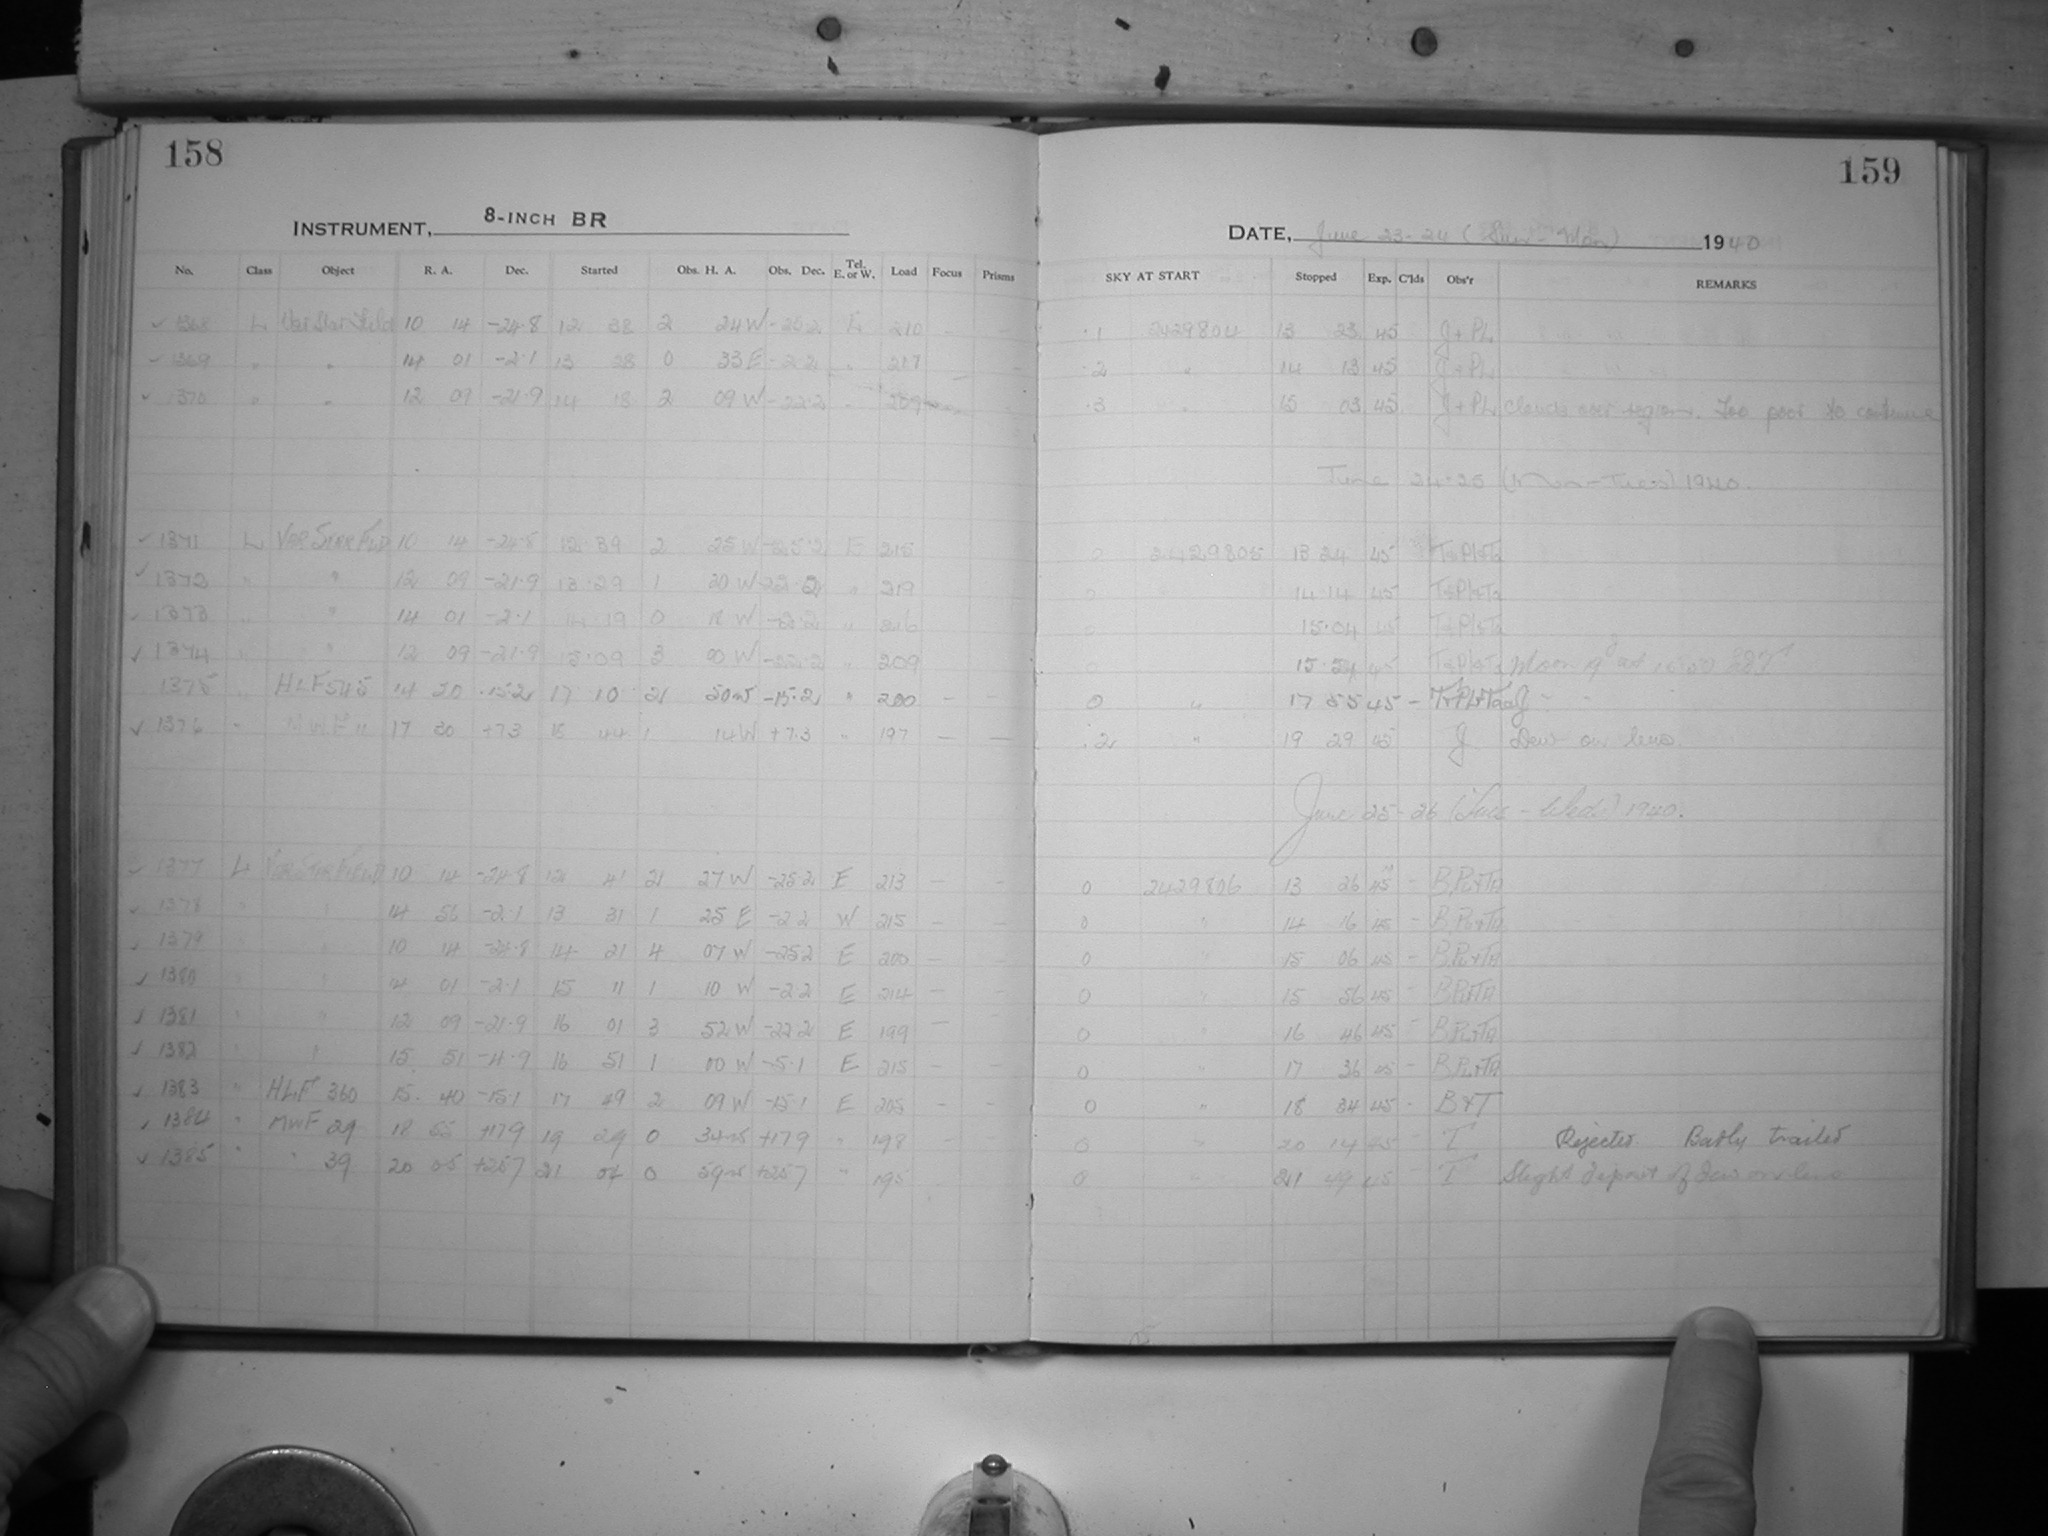 158
159
INSTRUMENT, 8-INCH BR
DATE, June 23-24 (Sun - Mon) 1940
No. Class Object R. A. Dec. Started Obs. H. A. Obs. Dec. Tel. E. or W. Load Focus Prisms SKY AT START Stopped Exp. C'lds Obs'r REMARKS
1368 L Var Star Field 10 14 -24.8 12 38 2 24 W -25.2 E 210 - - .1 2429804 13 23 45 J+PL
1369 " " 14 01 -2.1 13 28 0 33 E -2.2 " 217 - - .2 " 14 13 45 J+PL
1370 " " 12 09 -21.9 14 18 2 09 W -22.2 " 209 .3 " 15 03 45 J+PL Clouds over region. Too poor to continue
June 24-25 (Mon-Tues) 1940.
1371 L VAR STAR FLD 10 14 -24.8 12 39 2 25 W -25.2 E 215 0 2429805 13 24 45
1372 " " 12 09 -21.9 13 29 1 20 W -22.2 " 219 0 14 14 45
1373 " " 14 01 -2.1 14 19 0 18 W -2.2 " 216 0 15.04 45
1374 " " 12 09 -21.9 15.09 3 00 W -22.2 " 209 0 15.54 45 Moon
1375 " HLF 545 14 50 -15.2 17 10 2 50 W -15.2 " 200 - - 0 " 17 55 45 -
1376 " MWF " 17 30 +7.3 18 44 1 14 W +7.3 " 197 - - .2 " 19 29 45 J Dew on lens.
June 25-26 (Tues - Wed.) 1940.
1377 L VAR STAR FIELD 10 14 -24.8 12 41 2 27 W -25.2 E 213 - - 0 2429806 13 26 45 - B,PL+TA
1378 " " 14 56 -2.1 13 31 1 25 E -2.2 W 215 - - 0 " 14 16 45 - B,PL+TA
1379 " " 10 14 -24.8 14 21 4 07 W -25.2 E 200 - - 0 " 15 06 45 - B,PL+TA
1380 " " 14 01 -2.1 15 11 1 10 W -2.2 E 214 - - 0 " 15 56 45 - B,PL+TA
1381 " " 12 09 -21.9 16 01 3 52 W -22.2 E 199 - - 0 " 16 46 45 - B,PL+TA
1382 " " 15 51 -4.9 16 51 1 00 W -5.1 E 215 - - 0 " 17 36 45 - B,PL+TA
1383 " HLF 360 15 40 -15.1 17 49 2 09 W -15.1 E 205 - - 0 " 18 34 45 - B+T
1384 " MWF 29 18 55 +17.9 19 29 0 34 W +17.9 " 198 0 " 20 14 45 - T Rejected Badly trailed
1385 " " 39 20 05 +25.7 21 04 0 59 W +25.7 " 195 0 " 21 49 45 T Slight deposit of dew on lens